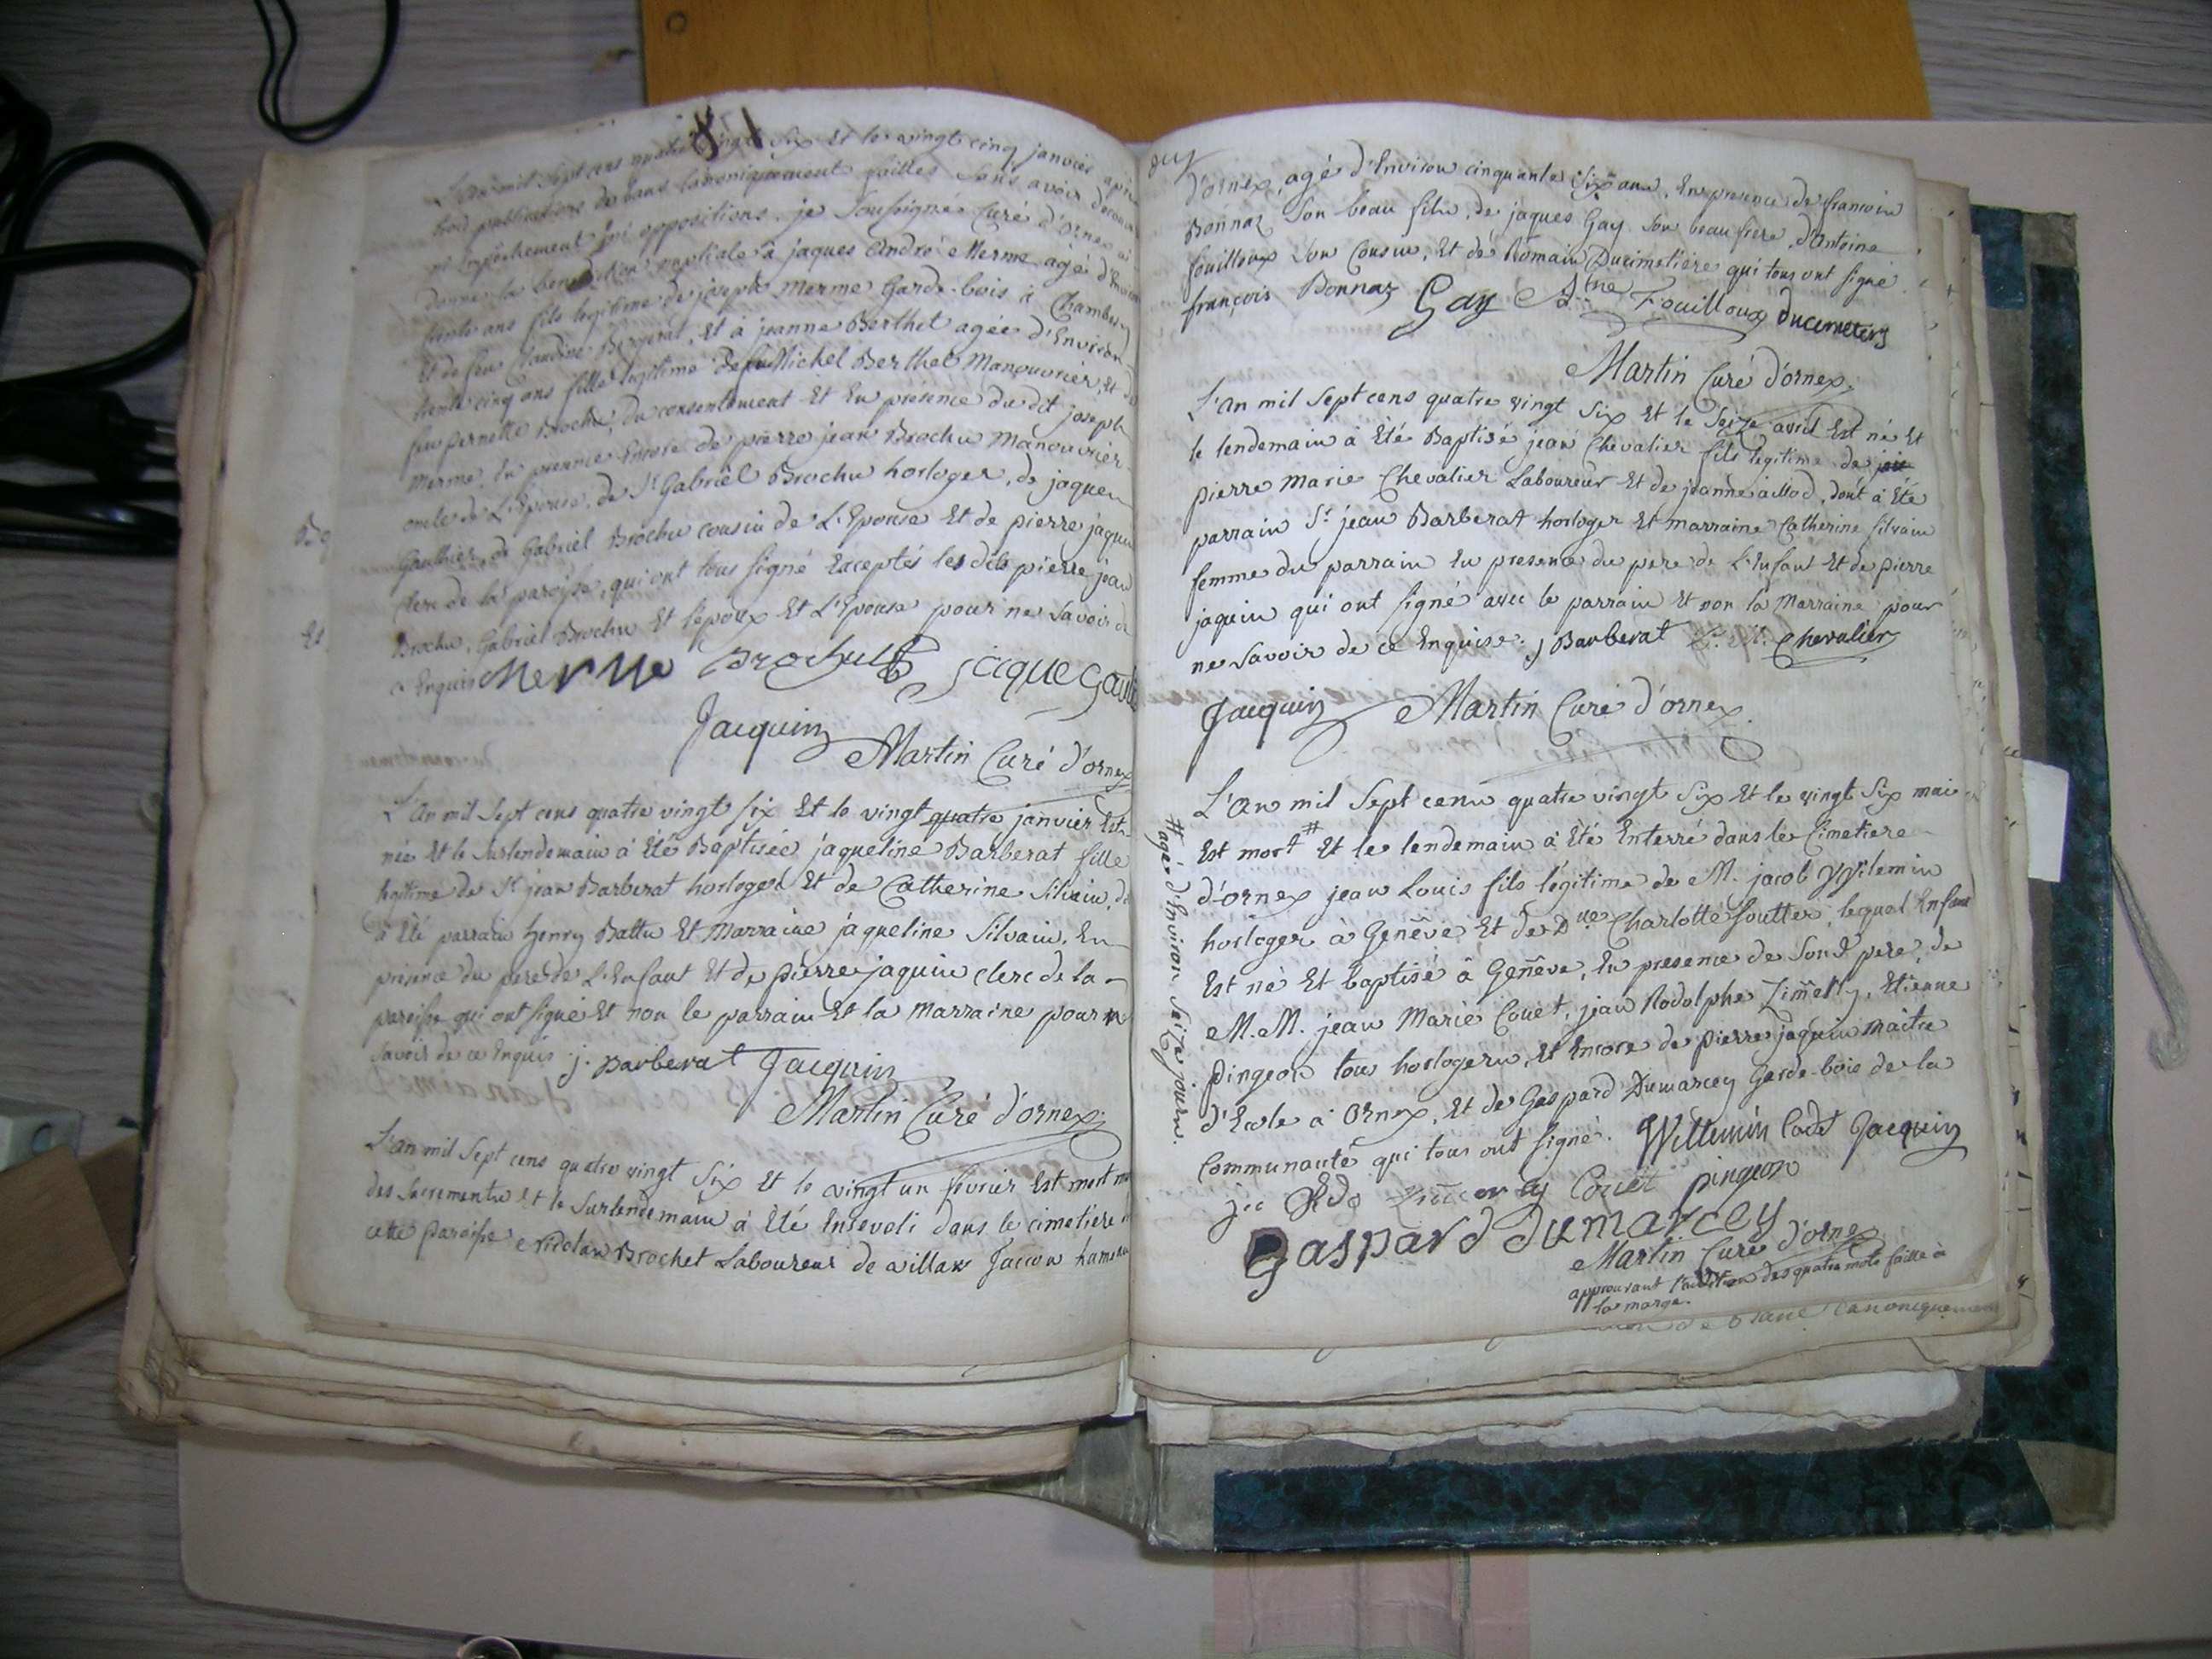 L'an mil sept cens quatre vingt six Et le vingt cinq janvier après
trois publications de bans canoniquement faittes sans avoir decouvert
ni empêchement ni oppositions, je soussigné Curé d'Ornex ai
donné la benediction nuptiale à jaques André Merme agé d'Environ
trente ans fils legitime de joseph Merme Garde-bois à Chambesy
Et de feu Claudine Bergerat, Et à jeanne Berthet agée d'Environ
trente cinq ans fille legitime de feu Michel Berthet Manouvrier, Et de
feu pernette Brochu, du consentement Et En présence du dit joseph
Merme, En presence Encore de pierre jean Brochu Manouvrier
oncle de L'Epouse, de Sr Gabriel Brochu horloger, de jaques
Gauthier, de Gabriel Brochu cousin de L'Epouse Et de pierre jaquin
Clerc de la paroisse, qui ont tous signé Exceptés les dits pierre jean
Brochu, Gabriel Brochu Et l'epoux Et L'Epouse pour ne savoir de
ce Enquis Merme Brochu jaque Gautier
Jacquin
Martin Curé d'ornex
L'an mil sept cens quatre vingt six Et le vingt quatre janvier Est
née Et le surlendemain à Eté Baptisée jaqueline Barberat fille
legitime de Sr jean Barberat horloger Et de Catherine Silvain, dont
à Eté parrain henry Battu Et Marraine jaqueline Silvain, En
présence du pere de L'Enfant Et de pierre jaquin clerc de la
paroisse qui ont signé Et non le parrain Et la Marraine pour ne
savoir de ce Enquis. j. Barberat Jacquin
Martin Curé d'ornex.
L'an mil sept cens quatre vingt six Et le vingt un fevrier Est mort muni
des Sacrements Et le surlendemain à Eté Enseveli dans le cimetiere de
cette paroisse Nicolas Brochet Laboureur de villars Tacon hameau
d'ornex, agé d'Environ cinquante six ans, En presence de francois
Bonnaz son beau fils, de jaques Gay son beau frere, d'Antoine
fouilloux son Cousin, Et de Romain Ducimetière qui tous ont signé
françois Bonnaz Gay Atne Fouilloux ducimetiere
Martin Curé d'ornex.
L'an mil sept cens quatre vingt six Et le seize avril Est né Et
le lendemain à Eté Baptisé jean Chevalier fils legitime de
pierre Marie Chevalier Laboureur Et de jeanne aillod, dont à Eté
parrain Sr jean Barberat horloger Et marraine Catherine Silvain
femme du parrain En presence du pere de L'Enfant Et de pierre
jaquin qui ont signé avec le parrain Et non la Marraine pour
ne savoir de ce Enquise. j Barberat P. M. Chevalier
Jacquin Martin Curé d'ornex.
L'an mil sept cens quatre vingt six Et le vingt six mai
Est mort # Et le lendemain à Eté Enterré dans le Cimetiere
d'ornex jean Louis fils légitime de M. jacob Vuillemin
horloger à Genêve Et de Due Charlotte Soutter, lequel Enfant
Est né Et baptisé à Genêve, En presence de son dt pere, de
M. M. jean Marie Couet, jean Rodolphe Zimerly, Etienne
Pingeon tous horlogers, Et Encore de pierre jaquin Maitre
d'Ecole à Ornex, Et de Gaspard Dumarcey Garde-bois de la
Communauté qui tous ont signé. Willemin Cadet Jacquin
Couet pingeon
Gaspard dumarcey
Martin Curé d'ornex
approuvant l'addition des quatre mots faitte à
la marge.
# agé d'Environ seize jours.